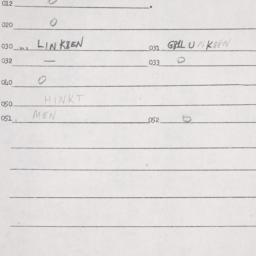 012 0
020 0
030 LINKSEN 031
032 — 033 0
040 0
050 HINKT
051 MEN 052 0